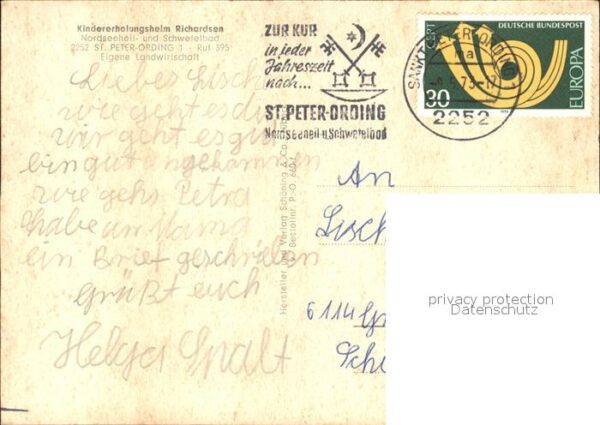 Kindererholungsheim Richardsen
Nordseeheil- und Schwefelbad
2252 ST. PETER-ORDING 1 - Ruf 595
Eigene Landwirtschaft
Liebes Lisch
wie geht es du
wir geht es gut
bin gut angekommen
wie gehs Petra
habe an Mama
ein Brief geschrieben
grüßt euch
Helga Spalt
Hersteller und Verlag Schöning & Co
Bestellnr. P.-O.
ZUR KUR
in jeder
Jahreszeit
nach...
ST. PETER-ORDING
Nordseeheil u. Schwefelbad
SANKT PETER-ORDING
2252
DEUTSCHE BUNDESPOST
CEPT
EUROPA
30
An
Lisch
6114 G
Sch
privacy protection
Datenschutz